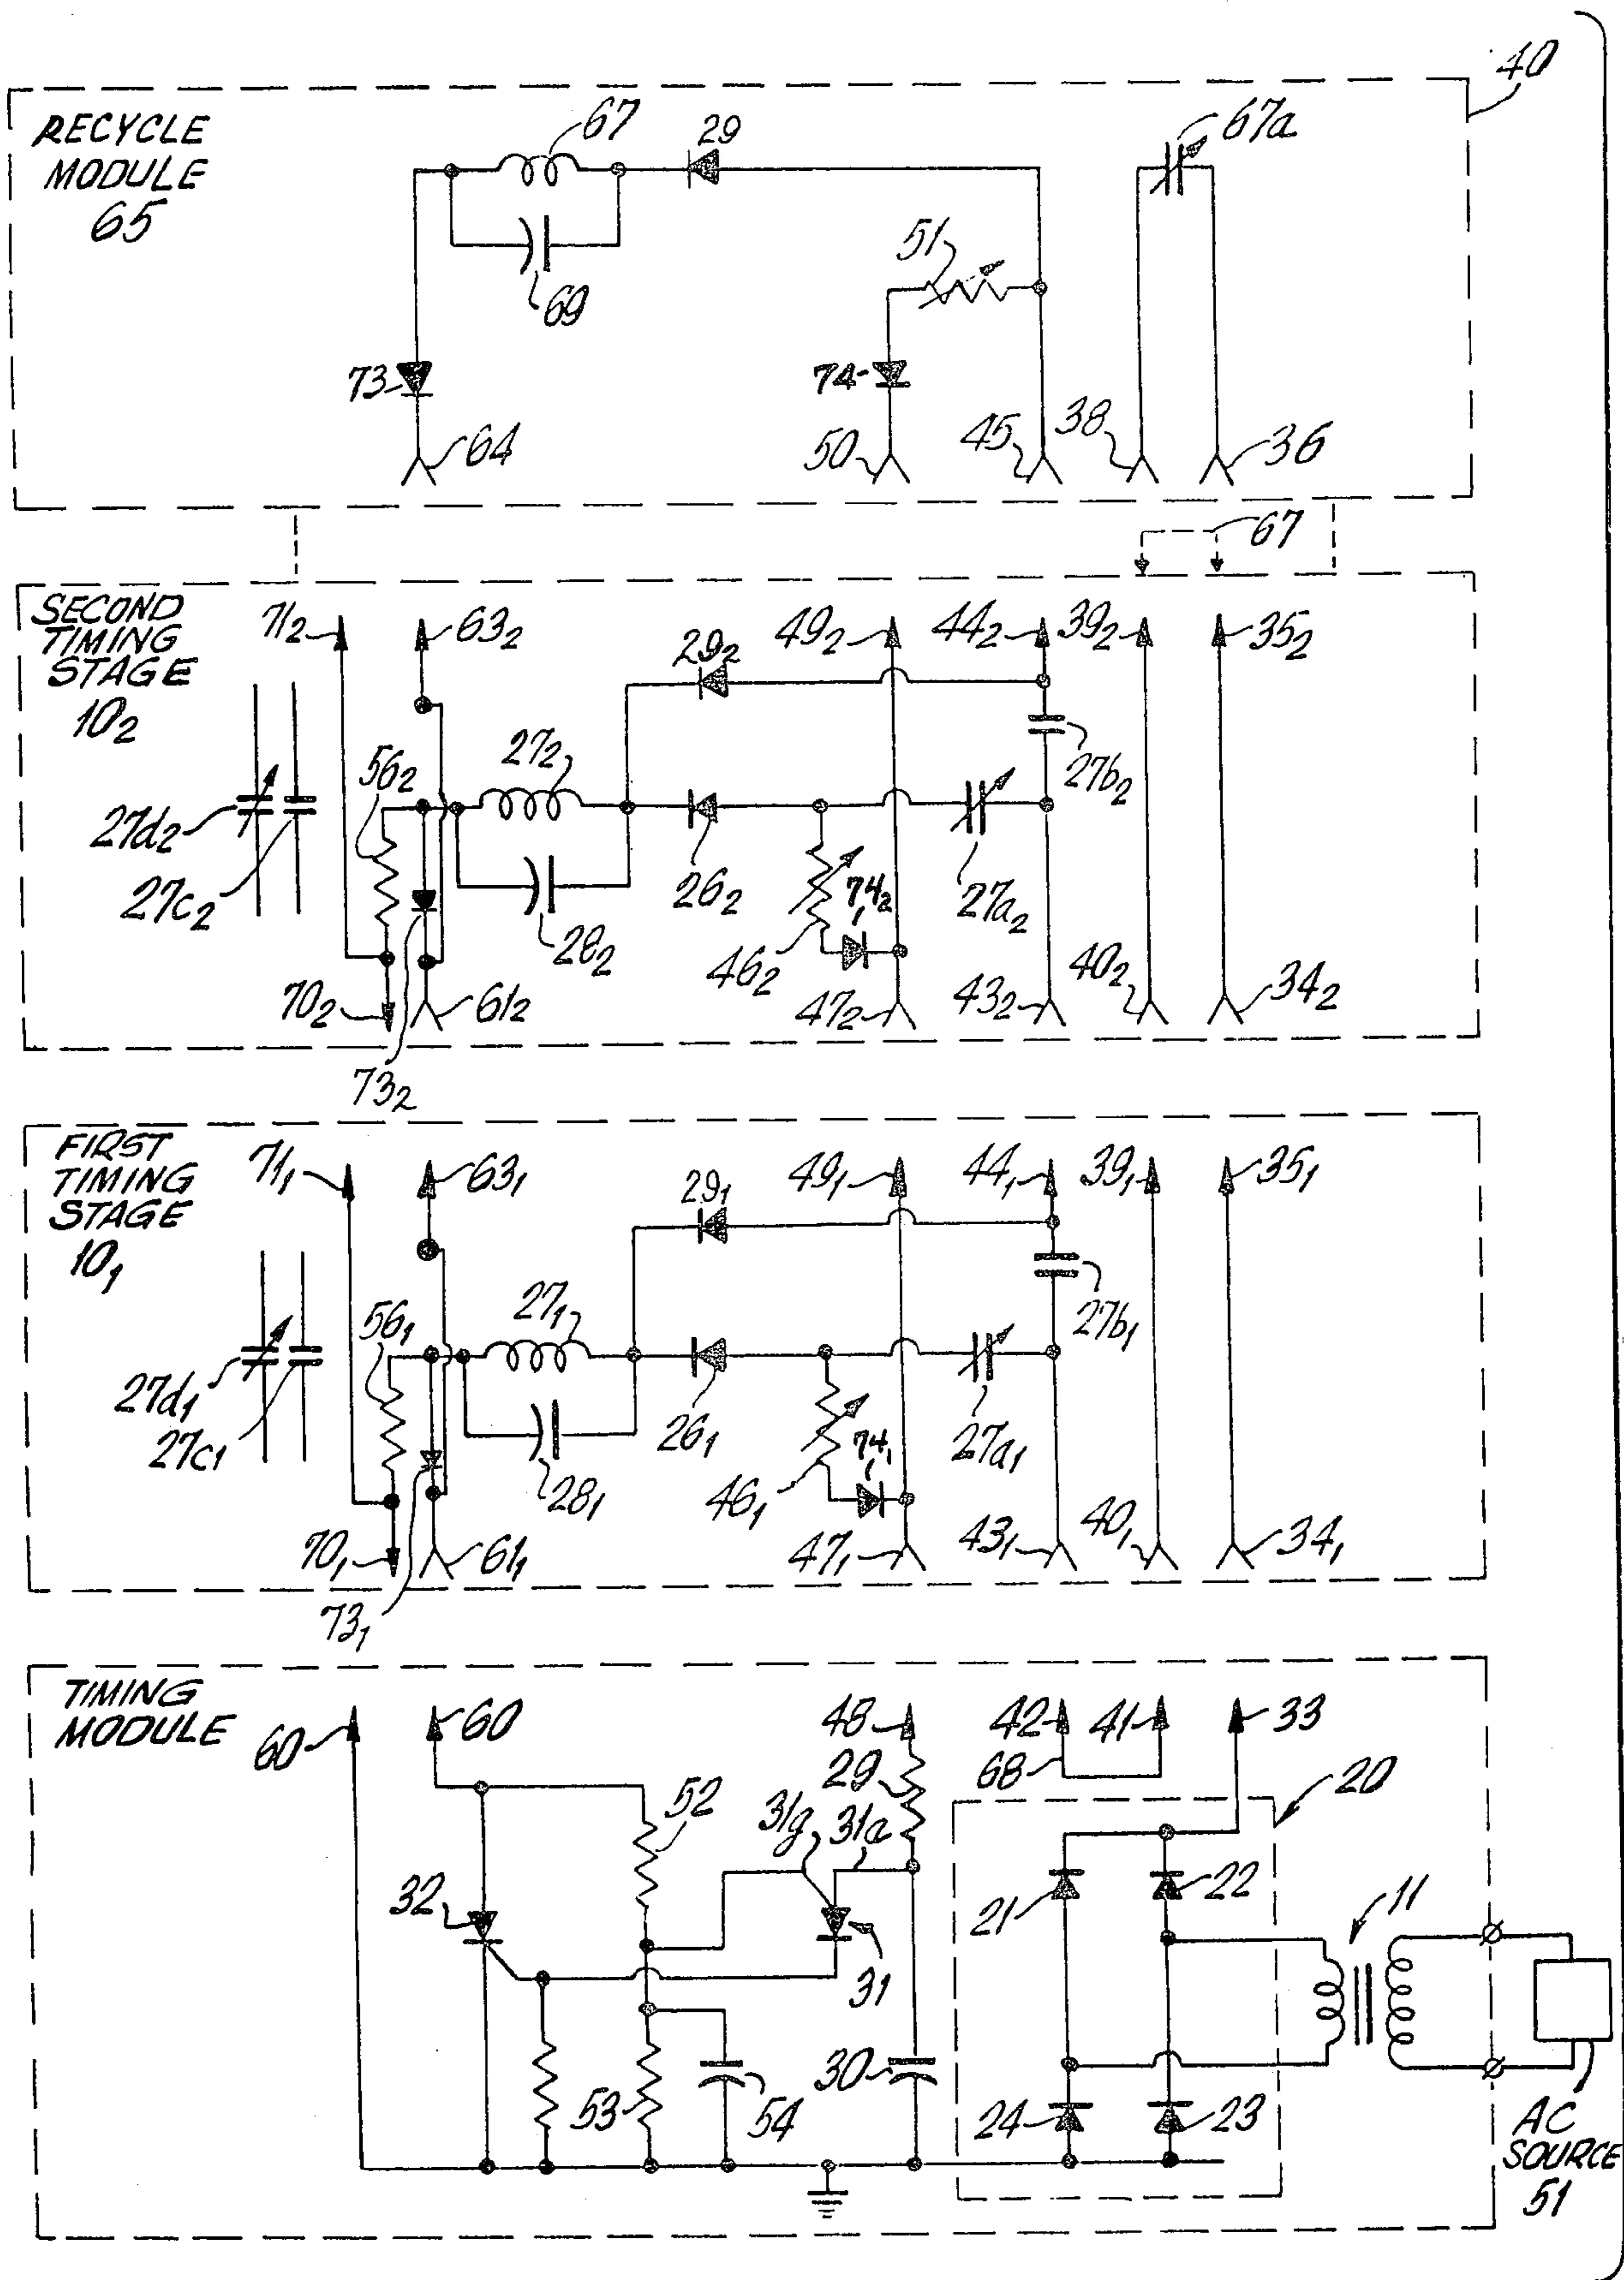 40
RECYCLE
MODULE
65
67
29
67a
51
69
73
74
64
50
45
38
36
67
SECOND
TIMING
STAGE
10₂
71₂
63₂
29₂
49₂
44₂
39₂
35₂
27d₂
27c₂
56₂
27₂
27b₂
28₂
26₂
46₂
74₂
27a₂
70₂
61₂
47₂
43₂
40₂
34₂
73₂
FIRST
TIMING
STAGE
10₁
71₁
63₁
29₁
49₁
44₁
39₁
35₁
27d₁
27c₁
56₁
27₁
27b₁
28₁
26₁
46₁
74₁
27a₁
70₁
61₁
47₁
43₁
40₁
34₁
73₁
TIMING
MODULE
60
60
48
42
41
33
29
68
20
52
31g
31a
32
21
22
11
31
53
54
30
24
23
AC
SOURCE
51